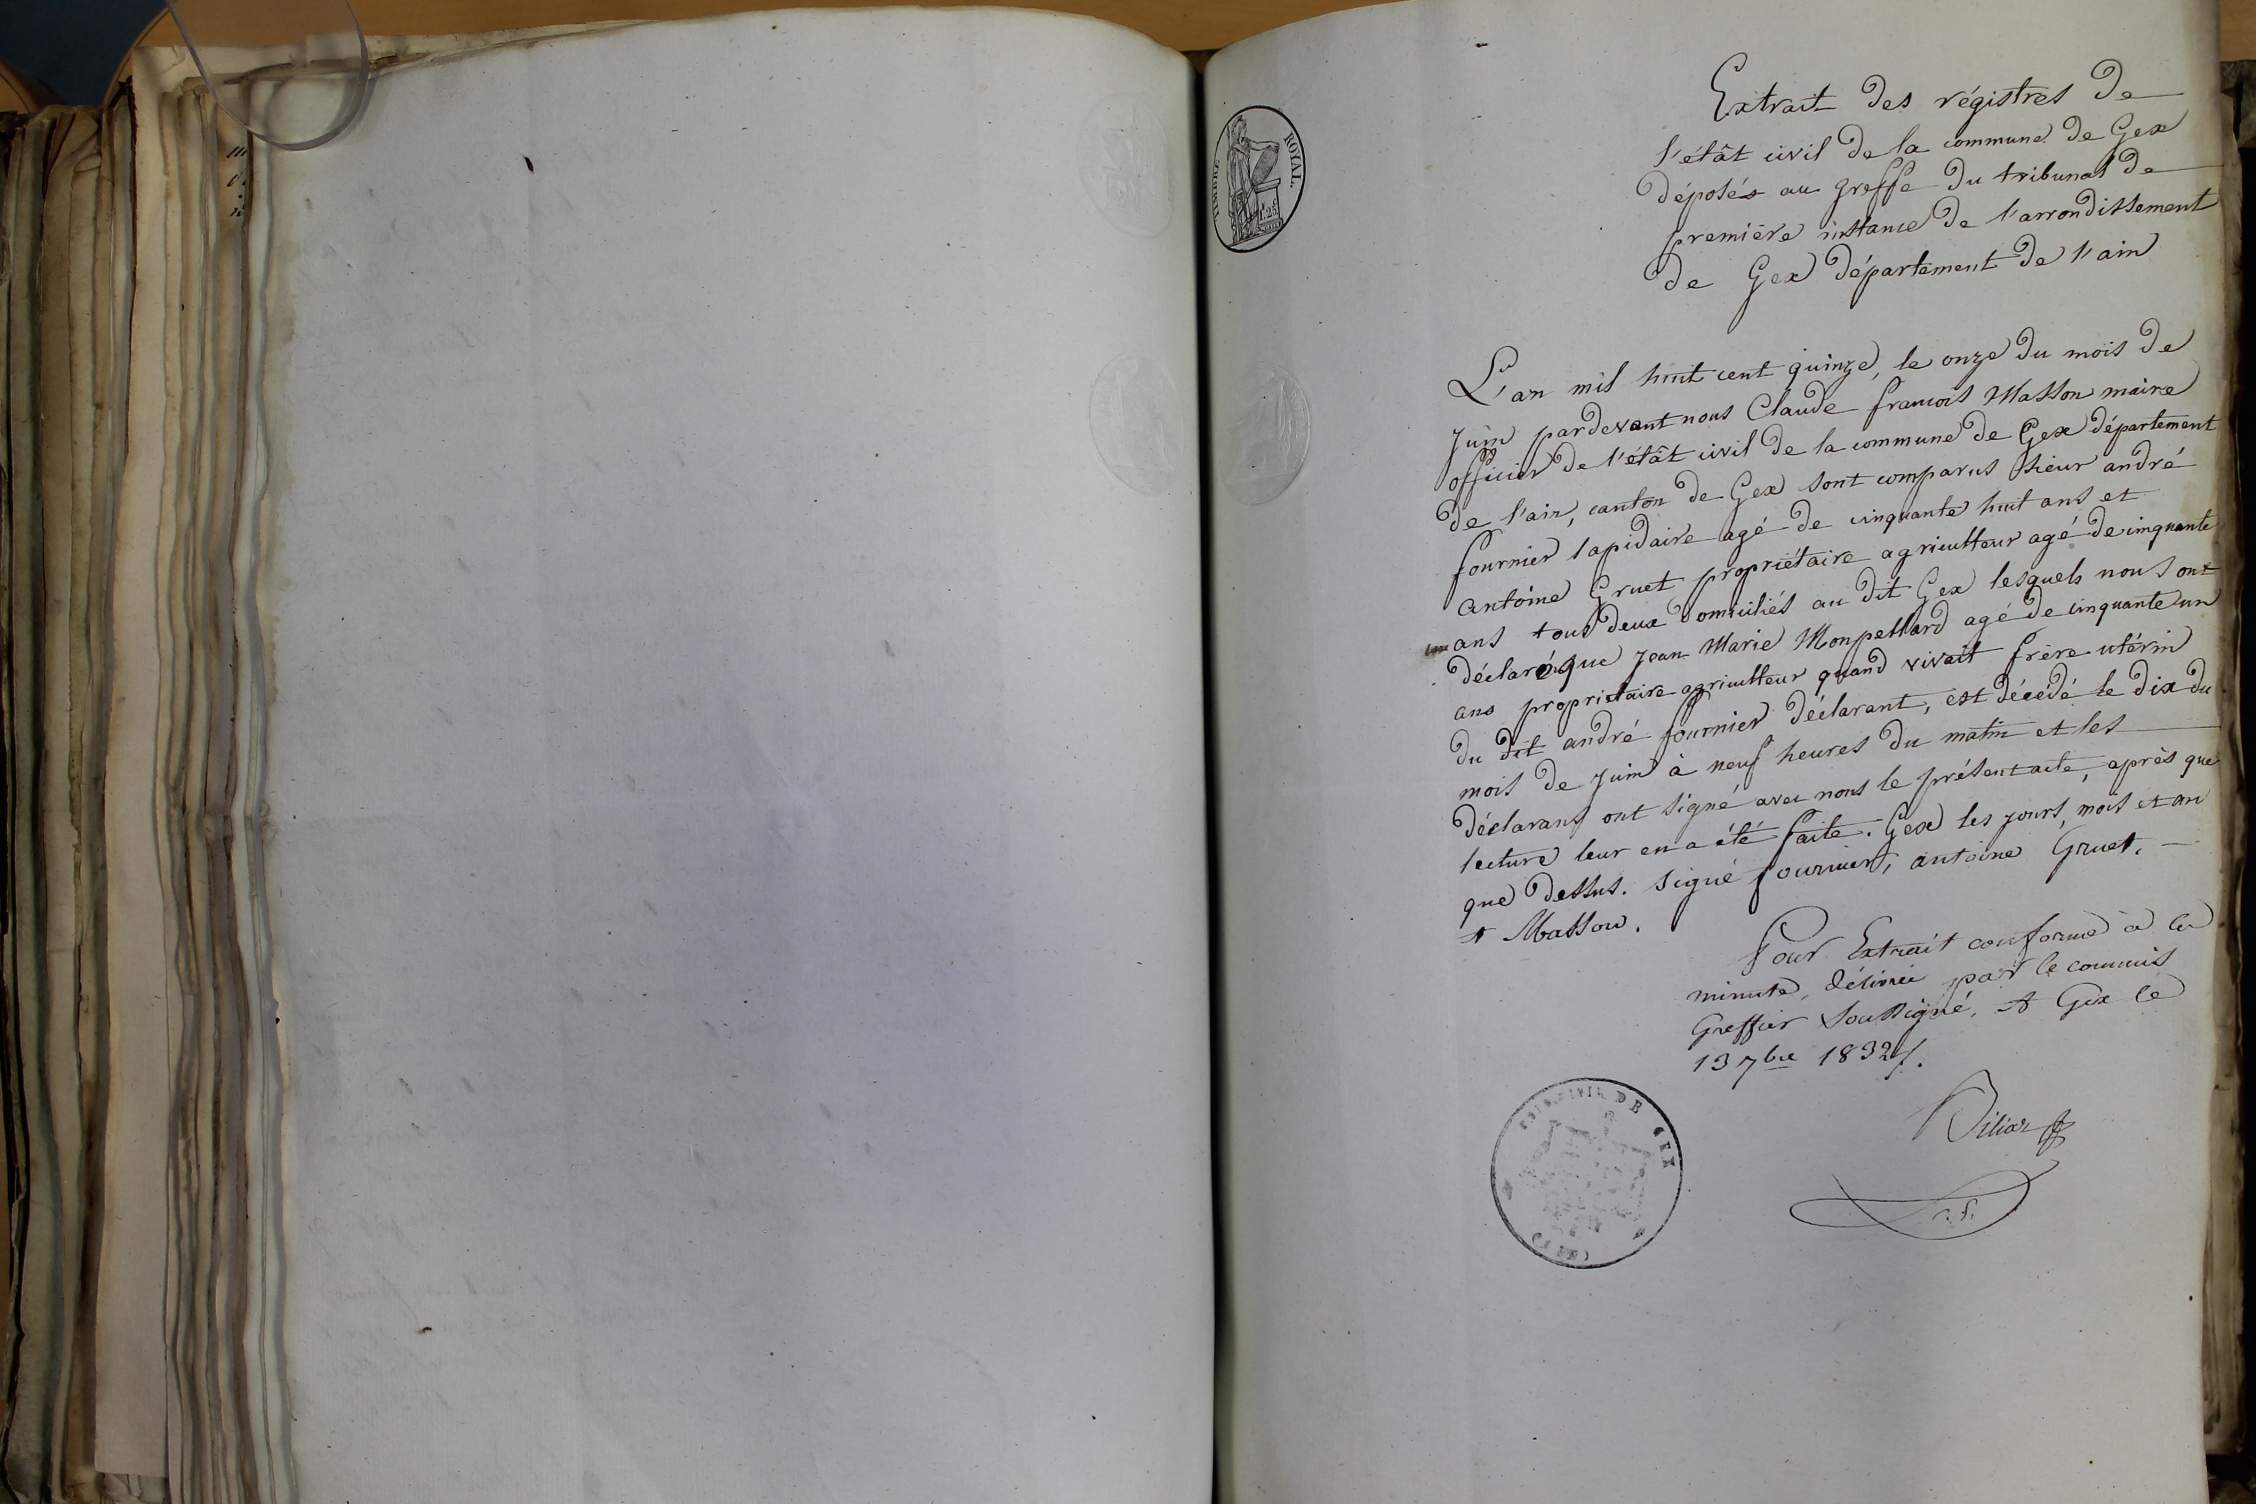 TIMBRE ROYAL.
1f. 25
Extrait des régistres de
l'étât civil de la commune de Gex
déposés au greffe du tribunal de
première instance de l'arrondissement
de Gex département de l'ain
L'an mil huit cent quinze, le onze du mois de
Juin pardevant nous Claude francois Masson maire
officier de l'étât civil de la commune de Gex département
de l'ain, canton de Gex sont comparus sieur andré
fournier lapidaire agé de cinquante huit ans et
antoine Gruet propriétaire agriculteur agé de cinquante
ans tous deux domiciliés au dit Gex lesquels nous ont
déclaré que jean Marie Monpellard agé de cinquante un
ans propriétaire agriculteur quand vivait frère utérin
du dit andré fournier déclarant, est décédé le dix du
mois de juin à neuf heures du matin et les
déclarans ont signé avec nous le présent acte, après que
lecture leur en a été faite. Gex les jours, mois et an
que dessus. signé fournier, antoine Gruet.
et Masson.
Pour Extrait conforme à la
minute, délivrée par le commis
Greffier soussigné, A Gex le
13 7bre 1832
DE GEX